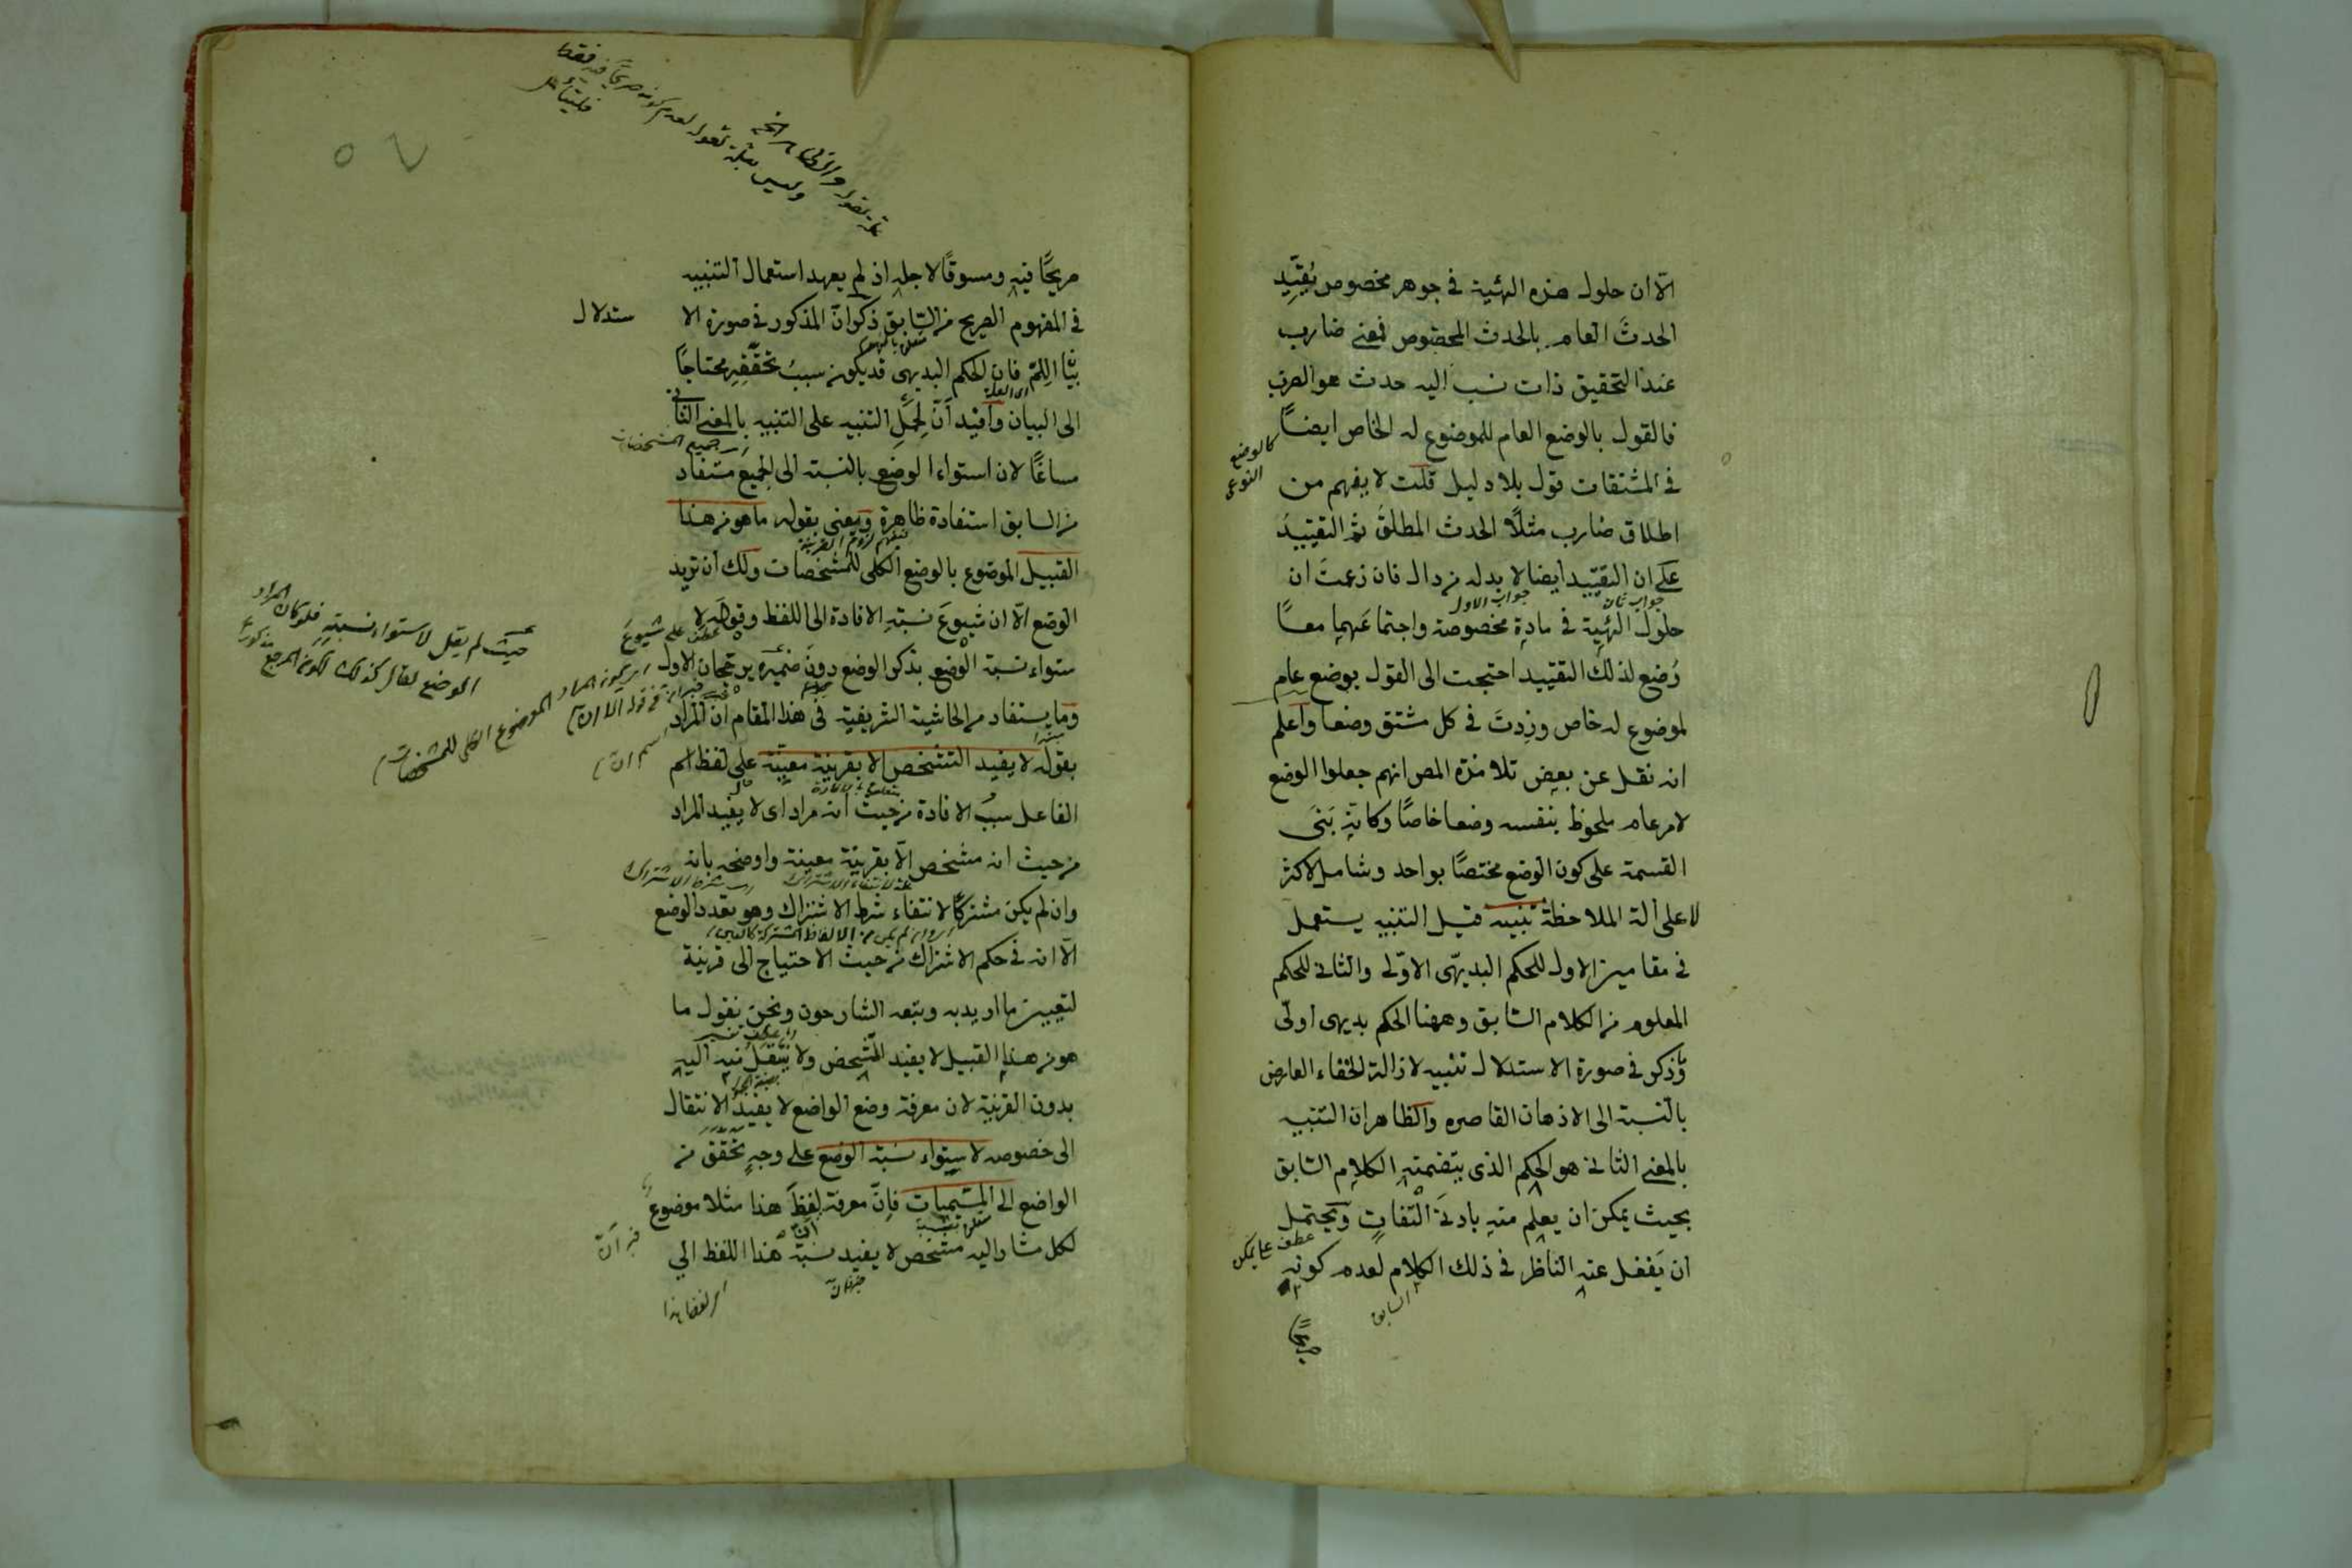 الّا ان حلول هذه الهئية في جوهر مخصوص يُقيِّد
الحدثَ العام بالحدث المخصوص فمعنى ضارب
عند التحقيق ذات نسب اليه حدث هو الضرب
فالقول بالوضع العام للموضوع له الخاص ايضًا
كالوضع النوعى
في المشتقات قول بلا دليل قلت لا يفهم من
اطلاق ضارب مثلًا الحدث المطلق ثم التقييدُ
على ان التقييد ايضا لا بد له من دال فان زعمتَ ان
جواب ثان
جواب الاول
حلول الهئية في مادةٍ مخصوصة واجتماعَهما معًا
وُضِع لذلك التقييد احتجت الى القول بوضع عام
لموضوع له خاص وزِدتَ في كل مشتق وضعا واعلم
انه نقل عن بعض تلامذه المص انهم جعلوا الوضع
لامر عام ملحوظ بنفسه وضعا خاصًا وكانّه بَنَى
القسمة على كون الوضع مختصًا بواحد وشاملا لاكثر
لا على آلة الملاحظة تنبيه قيل التنبيه يستعمل
في مقامين الاول للحكم البديهّى الاوّلى والثانى للحكم
المعلوم من الكلام السّابق وههنا الحكم بديهى اولّى
وذكر في صورة الاستدلال تنبيه لازالة الخفاء العارض
بالنّسبة الى الاذهان القاصره والظاهر ان التنبيه
بالمعنى الثانى هو الحكم الذى يتضمنه الكلام السّابق
بحيث يمكن ان يعلم منه بادنى التفات ويحتمل
عطف على يمكن
ان يَغفل عنه الناظر في ذلك الكلام لعدم كونه
السابق
صريحًا
فليتأمل
صريحًا فيه ومسوقًا لاجله اذ لم يعهد استعمال التنبيه
في المفهوم الصريح من السّابق ذكر انّ المذكور في صورة الا
ستدلال
بيّنا اللِمّ فان الحكم البديهى قد يكون سببُ تحقّقِه محتاجًا
الى البيان وافيد انّ لِحَمل التنبيه على التنبيه بالمعنى الثانى
مساغًا لان استواء الوضع بالنسبة الى الجميع مستفاد
من السابق استفادة ظاهرة ويعنى بقوله ما هو من هذا
القبيل الموضوع بالوضع الكلى للمشخصات ولك ان تريد
الوضع الّا ان شيوعَ نسبة الافادة الى اللفظ وقوله لا
عطف على شيوع
ستواء نسبة الوضع بذكر الوضع دون ضميره يرجّحان الاول
وما يستفاد من الحاشية الشريفية في هذا المقام انّ المراد
بقوله لا يفيد التشخص الا بقرينة معيّنة على لفظ اسم
الفاعل سببُ الافادة من حيث انه مراد اى لا يفيد المراد
من حيث انه مشخص الّا بقرينة معينة واوضحه بانه
وان لم يكن مشتركًا لانتفاء شرط الاشتراك وهو تعدد الوضع
الّا انه في حكم الاشتراك من حيث الاحتياج الى قرينة
لتعيين ما اريد به وتبعه الشارحون ونحن نقول ما
هو من هذا القبيل لا يفيد التّشخص ولا يَنتقلُ منه اليه
بدون القرينة لان معرفة وضع الواضع لا يفيد الانتقال
الى خصوصه لاستواء نسبة الوضع على وجهٍ تحقّقَ من
الواضع الى المسّميات فانّ معرفة لفظ هذا مثلا موضوع
خبر انّ
لكل مشار اليه مشخص لا يفيد نسبة هذا اللفظ الى
اى لفظ هذا
حيث لم يقل لاستواء نسبته فلو كان المراد
الوضع لقال كذلك لكون المرجع مذكورا
اى يكون المراد الموضوع الكلى للمشخصات